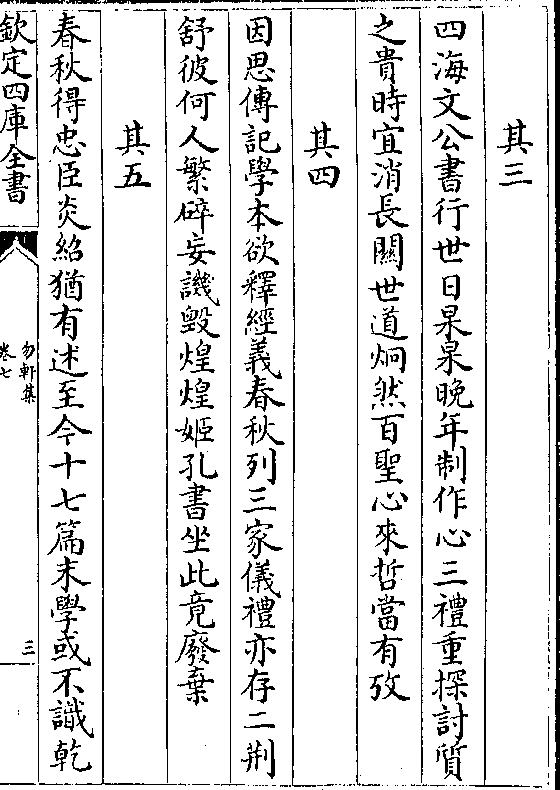 其三
四海文公書行世日杲杲晚年制作心三禮重探討質
之貴時宜消長關世道炯然百聖心來哲當有攷
其四
因思傳記學本欲釋經義春秋列三家儀禮亦存二荆
舒彼何人繁碎妄譏毁煌煌姬孔書坐此竟廢棄
其五
春秋得忠臣炎紹猶有述至今十七篇末學或不識乾
欽定四庫全書
勿軒集
卷七
三